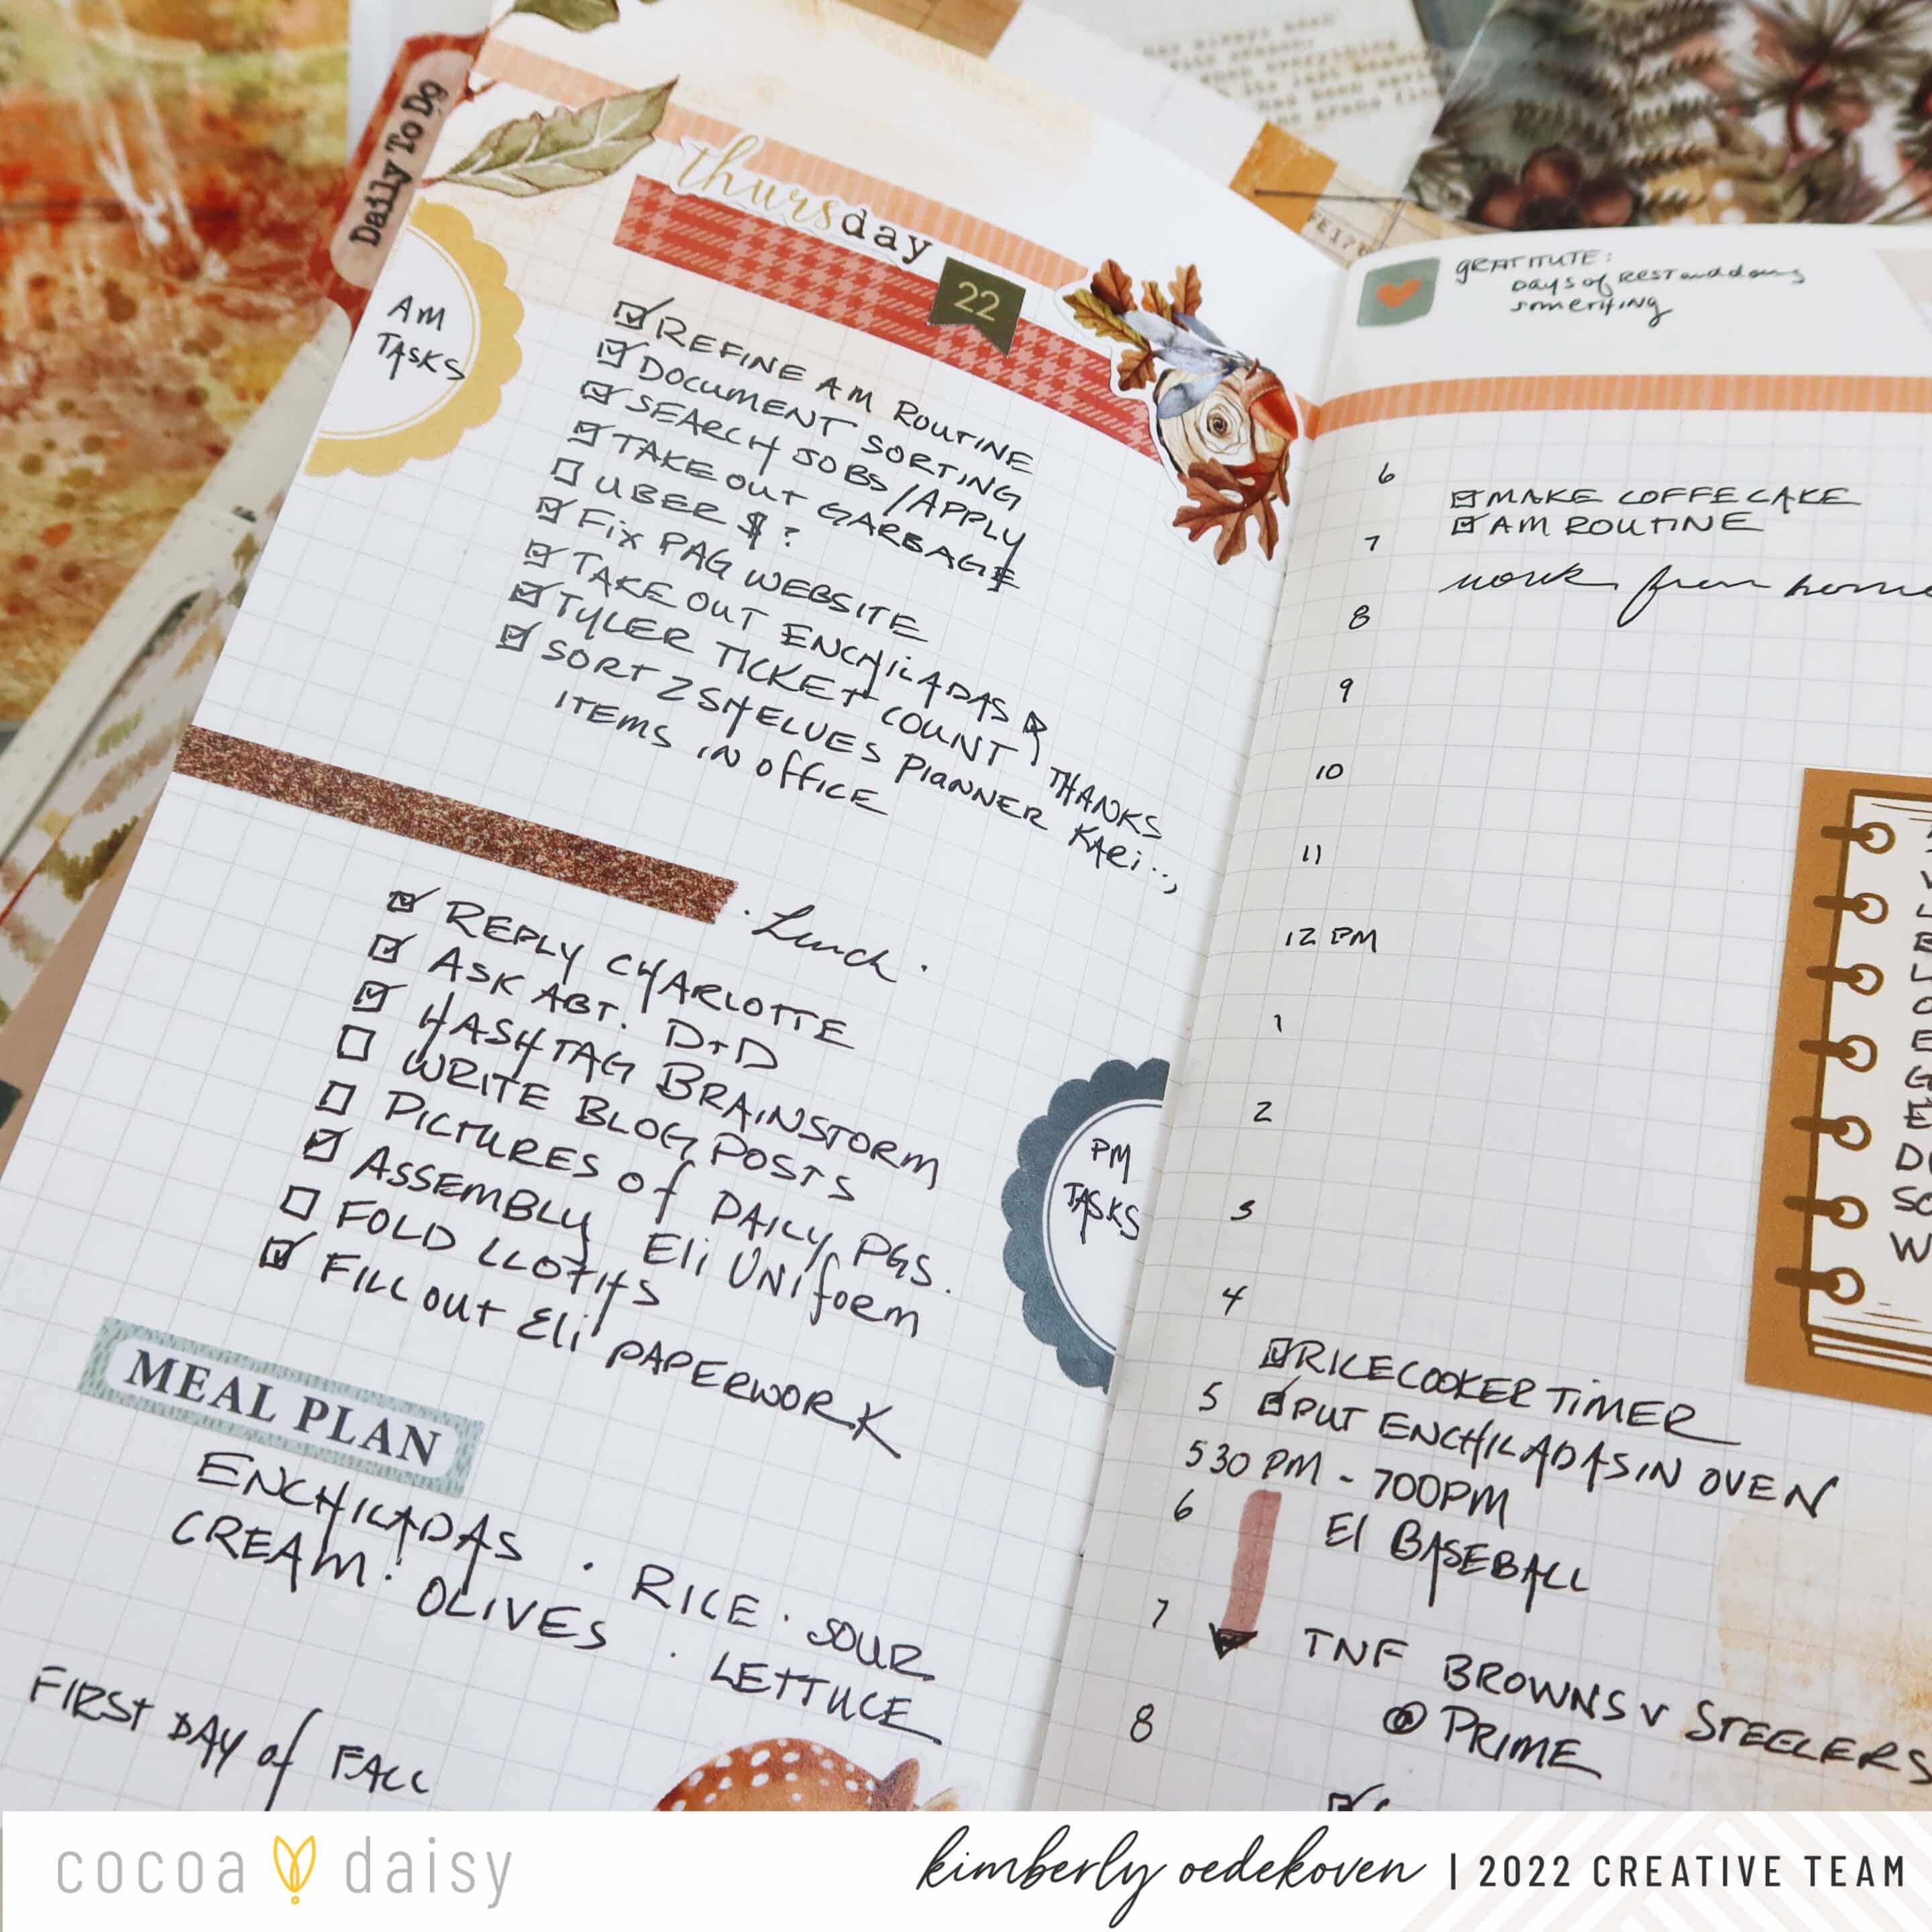 Daily To Do
thursday
22
AM
TASKS
REFINE AM ROUTINE
DOCUMENT SORTING
SEARCH JOBS/APPLY
TAKE OUT GARBAGE
UBER $?
FIX PAG WEBSITE
TAKE OUT ENCHILADAS
TYLER TICKET COUNT
SORT 2 SHELVES PLANNER
ITEMS IN OFFICE
THANKS
KARI..,
· Lunch ·
REPLY CHARLOTTE
ASK ABT. D+D
HASHTAG BRAINSTORM
WRITE BLOG POSTS
PICTURES of DAILY PGS.
ASSEMBLY Eli UNIform
FOLD CLOTHS
FILL OUT Eli PAPERWORK
PM
TASKS
MEAL PLAN
ENCHILADAS · RICE · SOUR
CREAM · OLIVES · LETTUCE
FIRST DAY of FALL
GRATITUTE:
DAYS of REST and doing
something
6
MAKE COFFE CAKE
AM ROUTINE
7
work from home
8
9
10
11
12 PM
1
2
3
4
RICECOOKER TIMER
5 PUT ENCHILADAS IN OVEN
530 PM - 700PM
6 El BASEBALL
7 TNF BROWNS v STEELERS
@ PRIME
8
cocoa daisy
kimberly oedekoven | 2022 CREATIVE TEAM